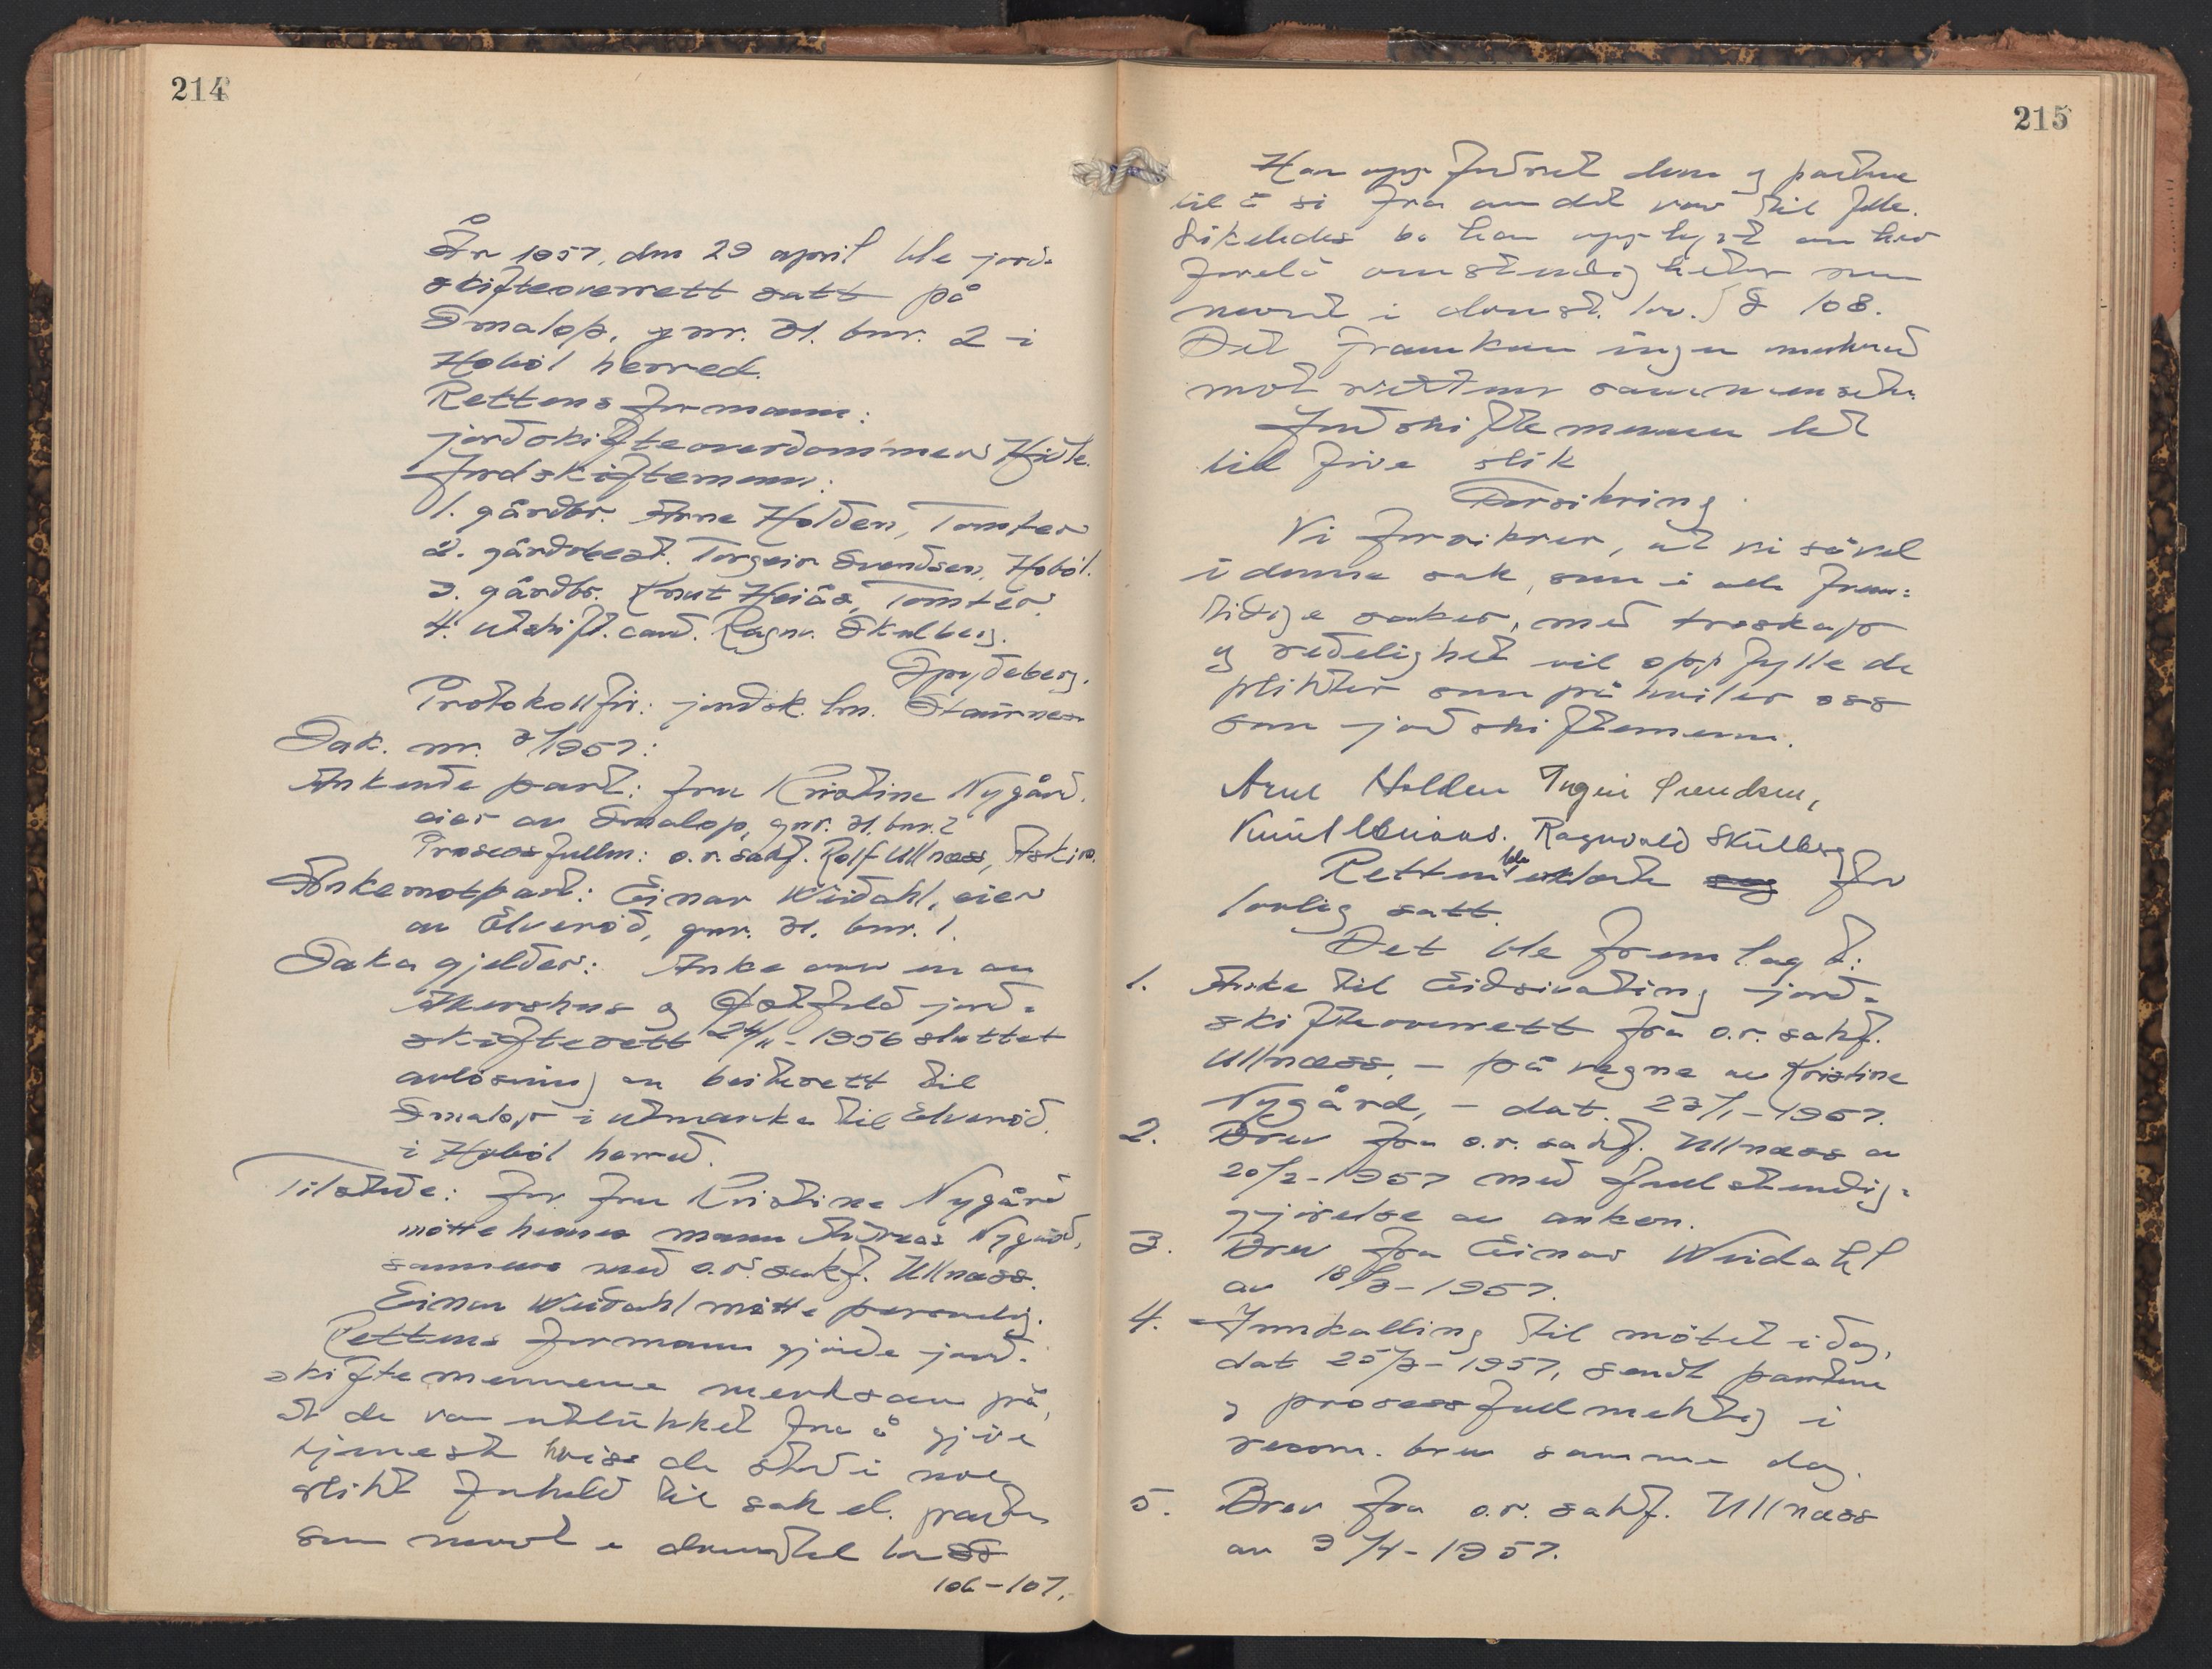 214
År 1957, den 29 april ble jord-
skifteoverrett satt på
Smalop, gnr. 31. bnr. 2 i
Hobøl herred.
Rettens formann:
jordskifteoverdommer
Jordskiftemenn:
1. gårdbr. Arne Holden, Tomter
2. gårdbest. Torgeir Svendsen, Hobøl.
3. gårdbr. Knut Heiås, Tomter.
4. utskift. cand. Ragnv. Skulberg.
Spydeberg.
Protokollfør: jordsk. km. Staurnes
Sak. nr. 3/1957:
Ankende part: fru Kristine Nygård.
eier av Smalop, gnr. 31. bnr. 2
Prosessfullm: o.r. sakf. Rolf Ullnæss, Askim.
Ankemotpart: Einar Wiidahl, eier
av Elverød, gnr. 31. bnr. 1.
Saka gjelder: Anke over en av
Akershus og Østfold jord-
skifterett 24/11-1956 sluttet
avløsning av beiterett til
Smalop i utmarka til Elverød.
i Hobøl herred.
Tilstede: for fru Kristine Nygård
møtte hennes mann Andreas Nygård,
sammen med o.r. sakf. Ullnæss.
Einar Wiidahl møtte personlig.
Rettens formann gjorde jord-
skiftemennene merksam på,
at de var utelukket fra å gjøre
tjeneste hviss de stod i noe
slikt forhold til sak el. parter
som nevnt i domstol lov §§
106-107.
215
Han oppfordret dem og partene
til å si fra om det var til felle.
Likeledes ba han opplyst om her
forelå omstendigheter som
nevnt i domst. lov. § 108.
Det framkom ingen merknad
mot rettens sammensetn.
Jordskiftemennene
til slik
Forsikring.
Vi forsikrer, at vi såvel
i denne sak, som i alle frem-
tidige saker, med troskap
og redelighet vil oppfylle de
plikter som på hviler oss
som jordskiftemenn.
Arne Holden Torgeir Svendsen,
Knut Heiaas. Ragnvald Skulberg
Retten ble erklært for
lovlig satt.
Det ble fremlagt:
1. Anke til Eidsivating jord-
skifteoverrett fra o.r. sakf.
Ullnæss, - på vegne av Kristine
Nygård, - dat. 23/1-1957.
2. Brev fra o.r. sakf. Ullnæss av
20/2-1957 med fullstendig-
gjørelse av anken.
3. Brev fra Einar Wiidahl
av 18/3-1957.
4. Innkalling til møtet i dag,
dat 25/3-1957, sendt partene
og prosessfullmektig i
recom. brev samme dag.
5. Brev fra o.r. sakf. Ullnæss
av 9/4-1957.